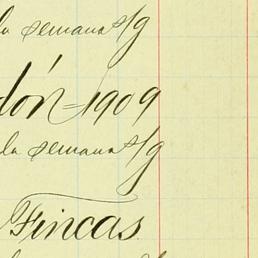 la semana s/g
dón 1909
la semana s/g
Fincas